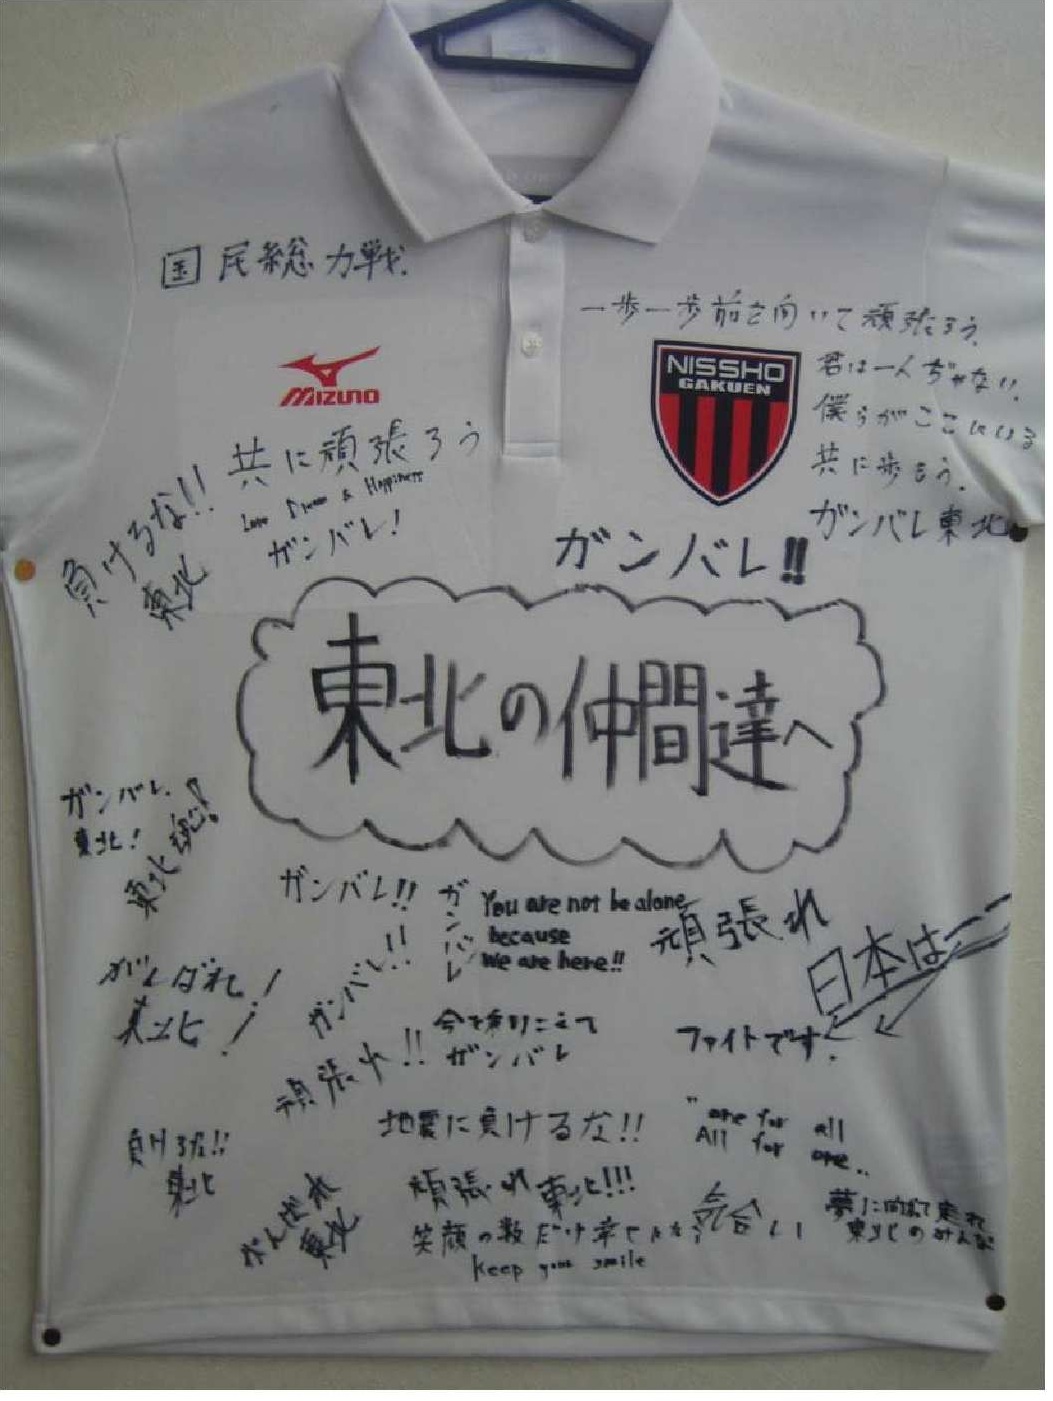 国民総力戦.
一歩一歩前を向いて頑張ろう.
MIZUNO
NISSHO
GAKUEN
君は一人ぢゃない!
僕らがここにいる
共に歩もう.
ガンバレ東北
共に頑張ろう
Love Dream & Happiness
ガンバレ!
負けるな!!
東北
ガンバレ!!
東北の仲間達へ
ガンバレ.
東北!
東北魂!
ガンバレ!!
ガンバレ
You are not be alone
because
We are here!!
頑張れ
日本は一
がんばれ!
東北!
ガンバレ!!
頑張れ!!
今を乗りこえて
ガンバレ
ファイトです.
地震に負けるな!!
"one for all
All for one..
負けるな!!
東北
がんばれ
東北
頑張れ東北!!!
笑顔の数だけ幸せ
Keep your smile
気合い
夢に向って走れ
東北のみんな